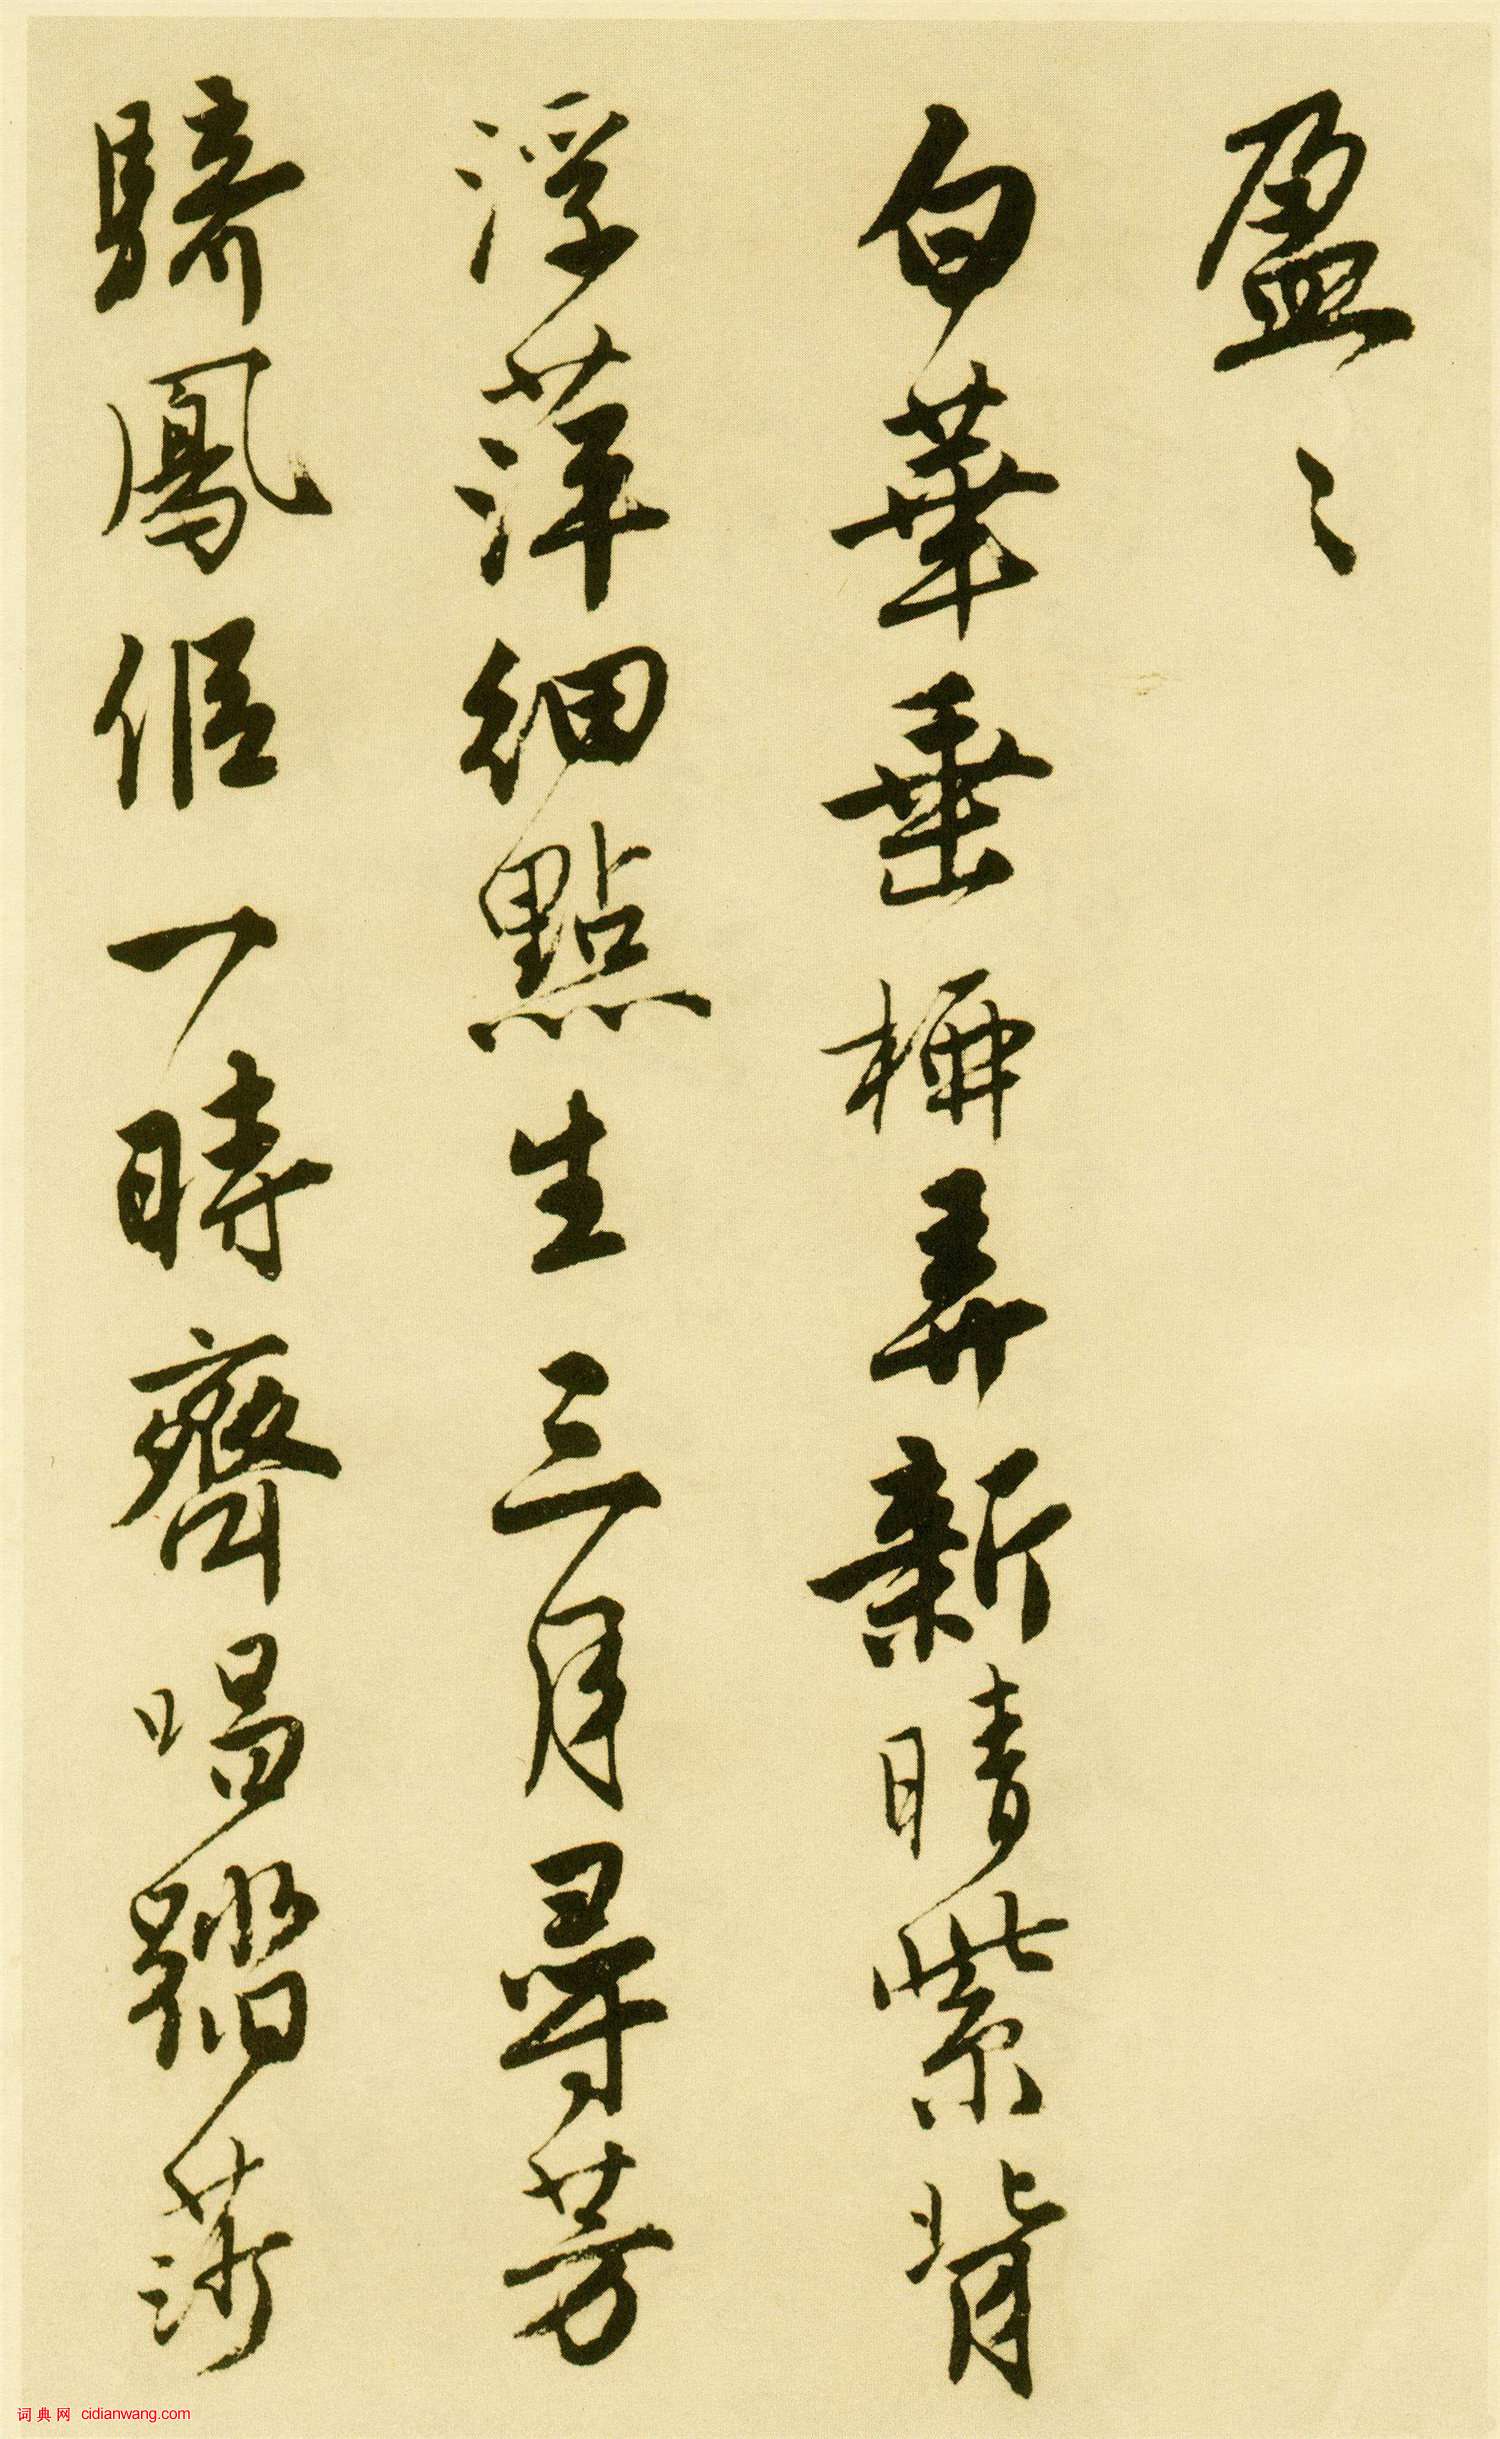 盈〻
白華垂柳弄新晴紫背
浮萍細點生三月尋芳
騎鳳侶一時齊唱踏莎
词典网 cidianwang.com